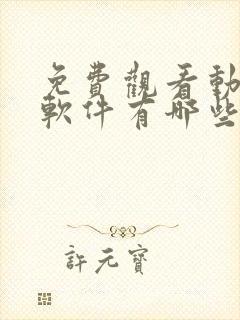 免費觀看動
軟件有哪些
許元寶